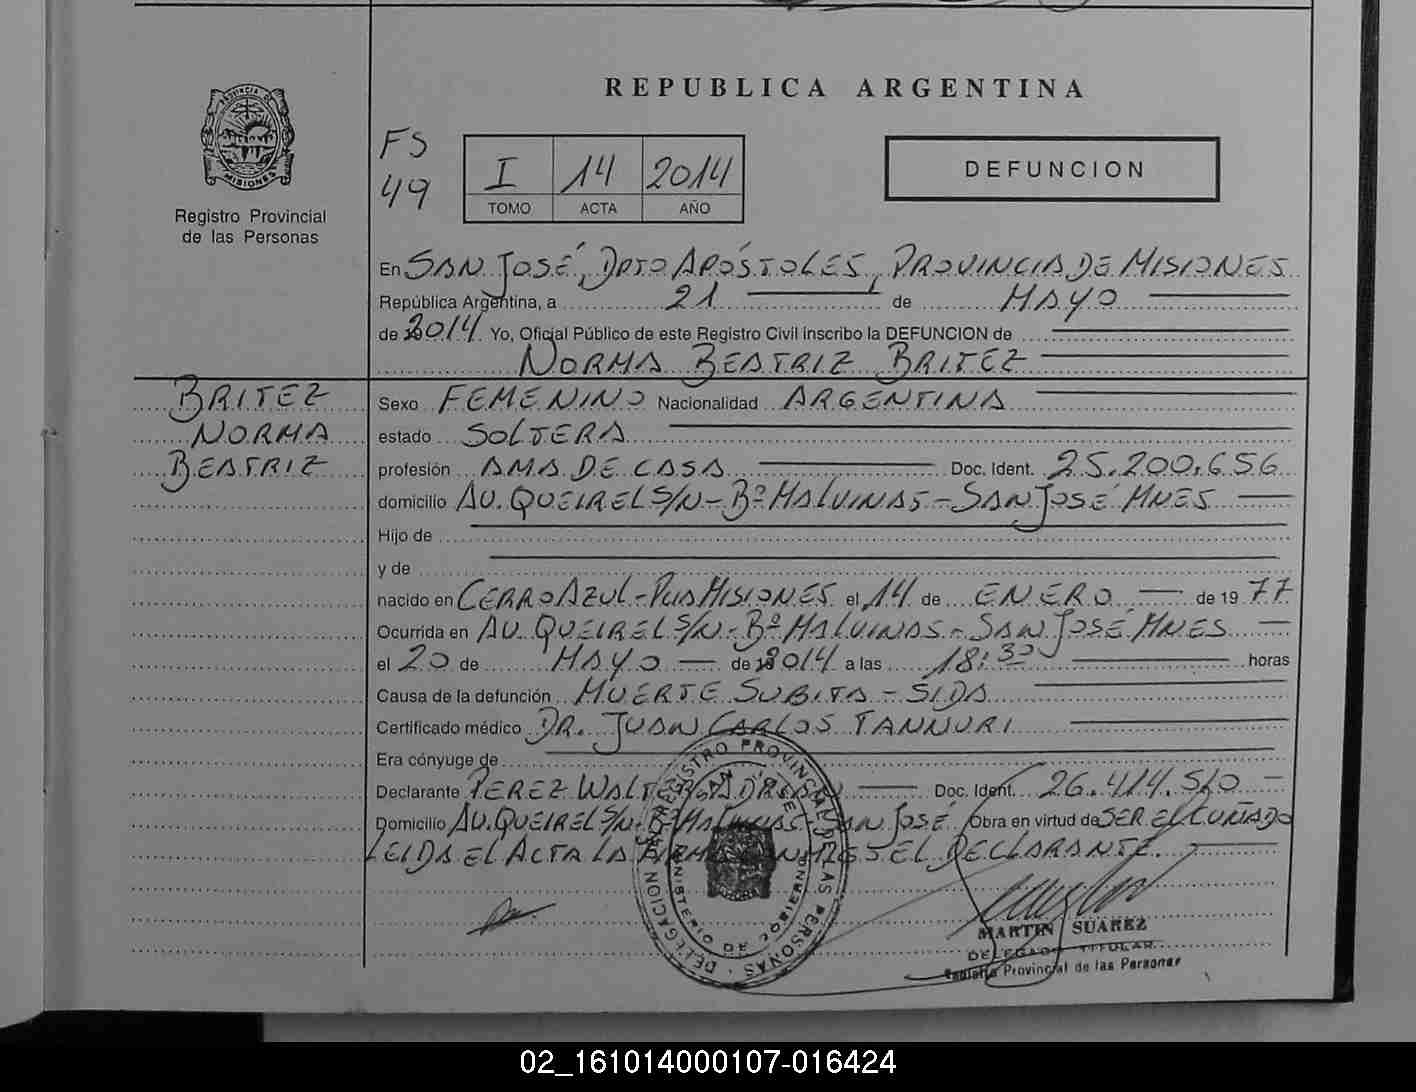 REPUBLICA ARGENTINA
PROVINCIA DE
MISIONES
Registro Provincial
de las Personas
FS
49
I 14 2014
TOMO ACTA AÑO
DEFUNCION
En SAN JOSÉ, DPTO APÓSTOLES, PROVINCIA DE MISIONES
República Argentina, a 21 de MAYO
de 2014. Yo, Oficial Público de este Registro Civil inscribo la DEFUNCION de
NORMA BEATRIZ BRITEZ
BRITEZ
NORMA
BEATRIZ
Sexo FEMENINO Nacionalidad ARGENTINA
estado SOLTERA
profesión AMA DE CASA Doc. Ident. 25.200.656
domicilio AV. QUEIREL S/N - Bº MALVINAS - SAN JOSÉ MNES
Hijo de
y de
nacido en CERRO AZUL - PCIA MISIONES el 14 de ENERO de 1977
Ocurrida en AV. QUEIREL S/N - Bº MALVINAS - SAN JOSÉ MNES
el 20 de MAYO de 2014 a las 18:30 horas
Causa de la defunción MUERTE SUBITA - SIDA
Certificado médico DR. JUAN CARLOS TANNURI
Era cónyuge de
Declarante PEREZ WALTER ADRIAN Doc. Ident. 26.414.510
Domicilio AV. QUEIREL S/N - Bº MALVINAS - SAN JOSÉ Obra en virtud de SER EL CUÑADO
LEIDA EL ACTA LA FIRMA CONMIGO EL DECLARANTE.
REGISTRO PROVINCIAL DE LAS PERSONAS - DELEGACION
SAN JOSE
MINISTERIO DE GOBIERNO
MARTIN SUAREZ
DELEGADO TITULAR
Registro Provincial de las Personas
02_161014000107-016424